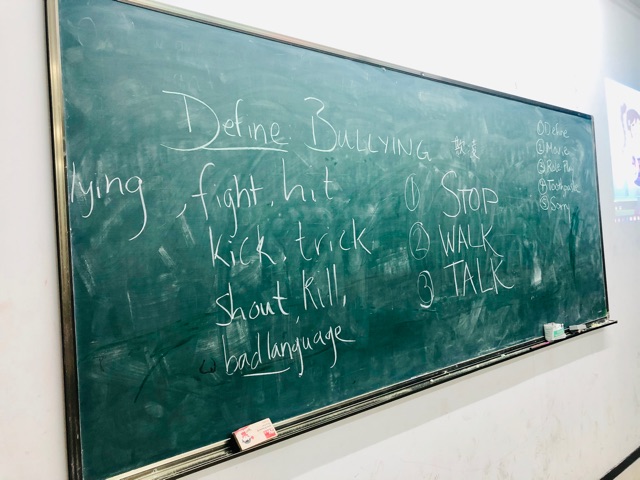 Define: BULLYING
lying, fight, hit
kick, trick
shout, kill,
bad language
① STOP
② WALK
③ TALK
① Define
② Movie
③ Role Play
④ Toothpaste
⑤